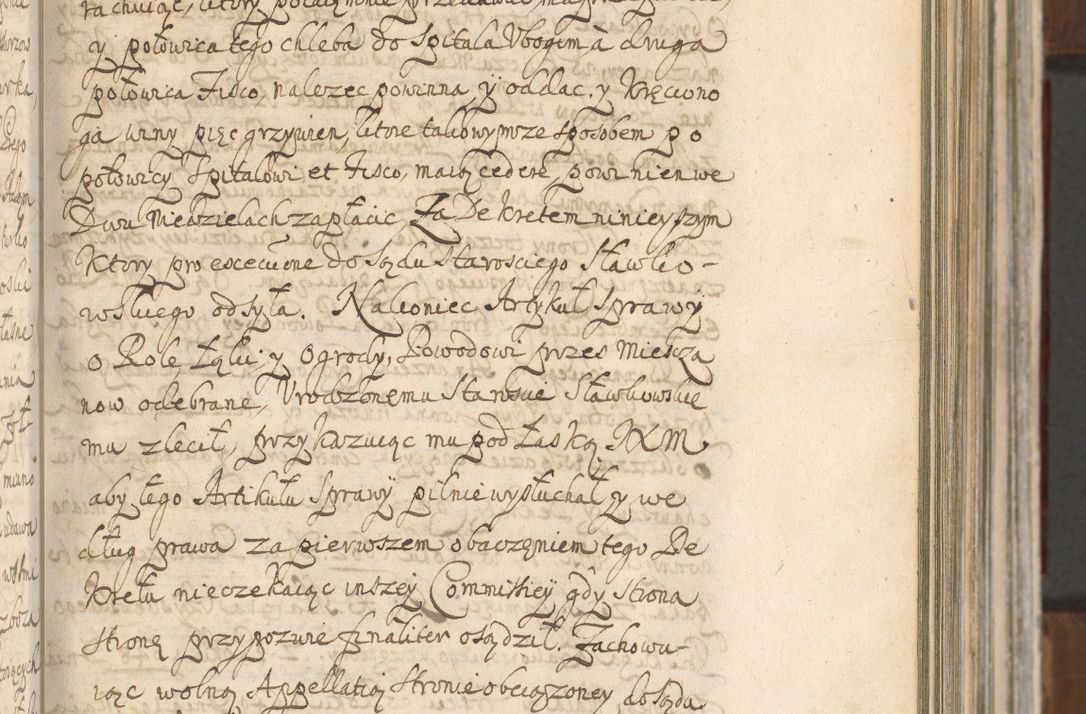 rachuiąc, ktory połaczmnie przedawac
y połowica tego chleba do Spitala Vbogim à druga
połowica Fisco, nalezec powinna, y oddac. y Kręciono
ga winy pięc grzywien, ktore takowymze sposobem po
połowicy Spitalowi et Fisco, maią cedere, powinien we
Dwu Niedzielach zapłacic, Za Dekretem ninieyszym
Ktory pro execucione do Sądu Starosciego Sławko-
wskiego odsyła. Nakoniec Artykuł Sprawy
o Rolę, Łąki, y Ogrody, Powodowi przes Miescza
now odebrane, Vrodzonemu Staroscie Sławkowskie
mu zlecił, przykazuiąc mu pod Łaską IXM
aby tego Artikułu Sprawy pilnie wysłuchał y we
dług prawa za pierwszem obaczęniem tego De
kretu nieczekaiąc inszey Commissiey gdy strona
stronę przypozwie finaliter osądził. Zachowu-
iąc wolną Appellatią stronie obciązoney do Sądu